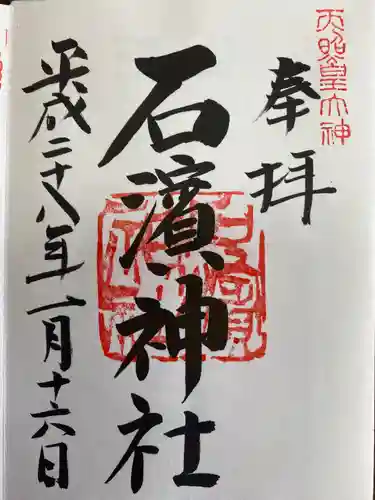 天照皇大神
奉拝
石濱神社
平成二十八年一月十六日